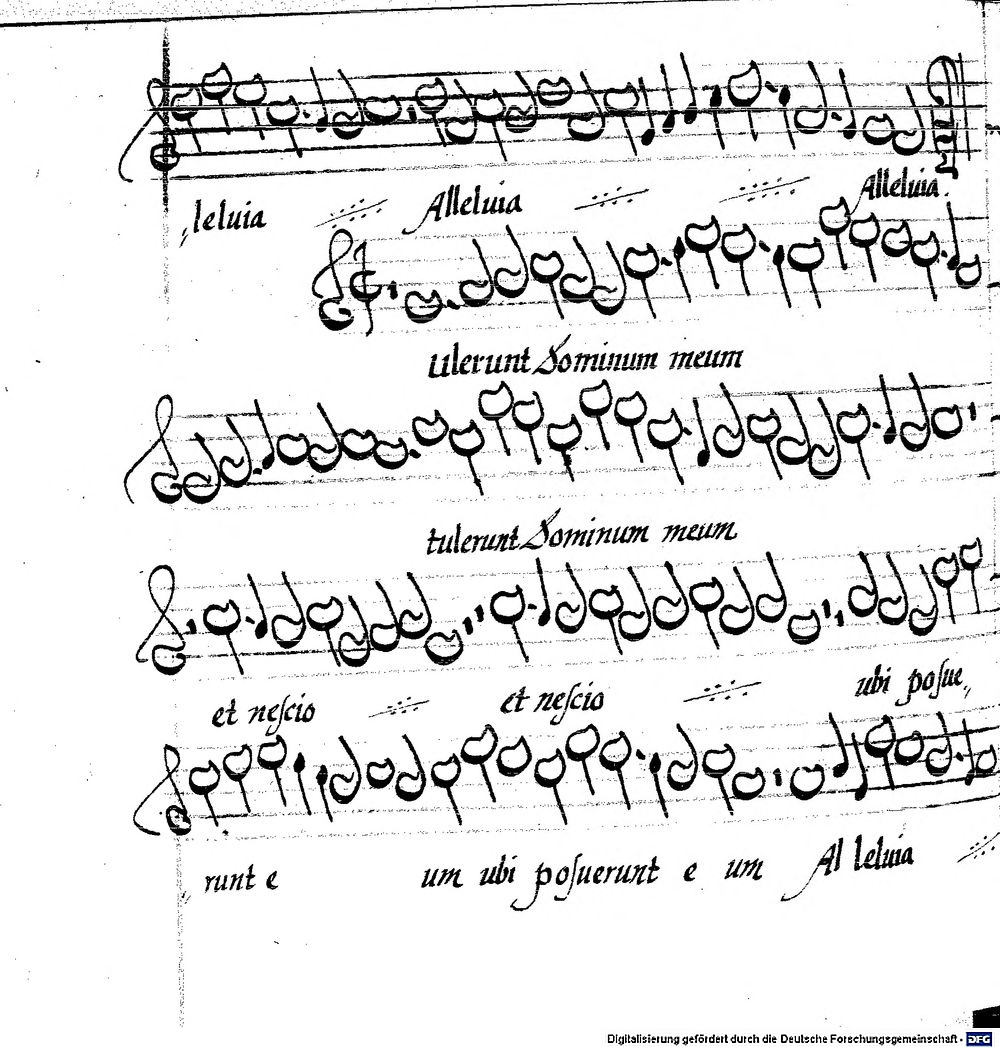 leluia Alleluia Alleluia.
ulerunt Dominum meum
tulerunt Dominum meum
et neſcio et neſcio ubi poſue
runt e um ubi poſuerunt e um Alleluia
Digitalisierung gefördert durch die Deutsche Forschungsgemeinschaft - DFG